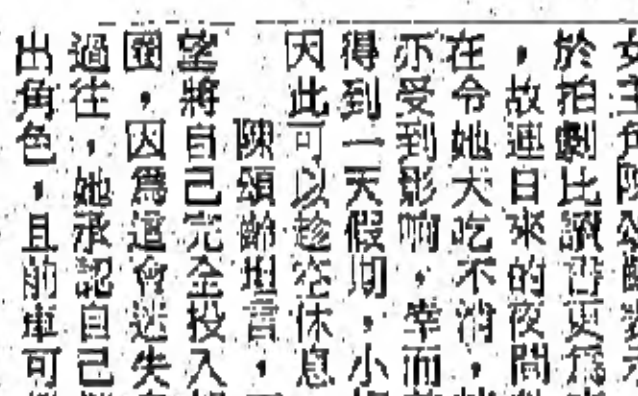 女主角陳
於拍劇比讀書更爲
，故連日來的夜間
在令她大吃不消，
亦受到影响，幸而
得到一天假期，小
因此可以趁空休息
陳頌齡坦言，
望將自己完全投入
圈，因爲這會迷失
過往，她承認自己
出角色，且前車可